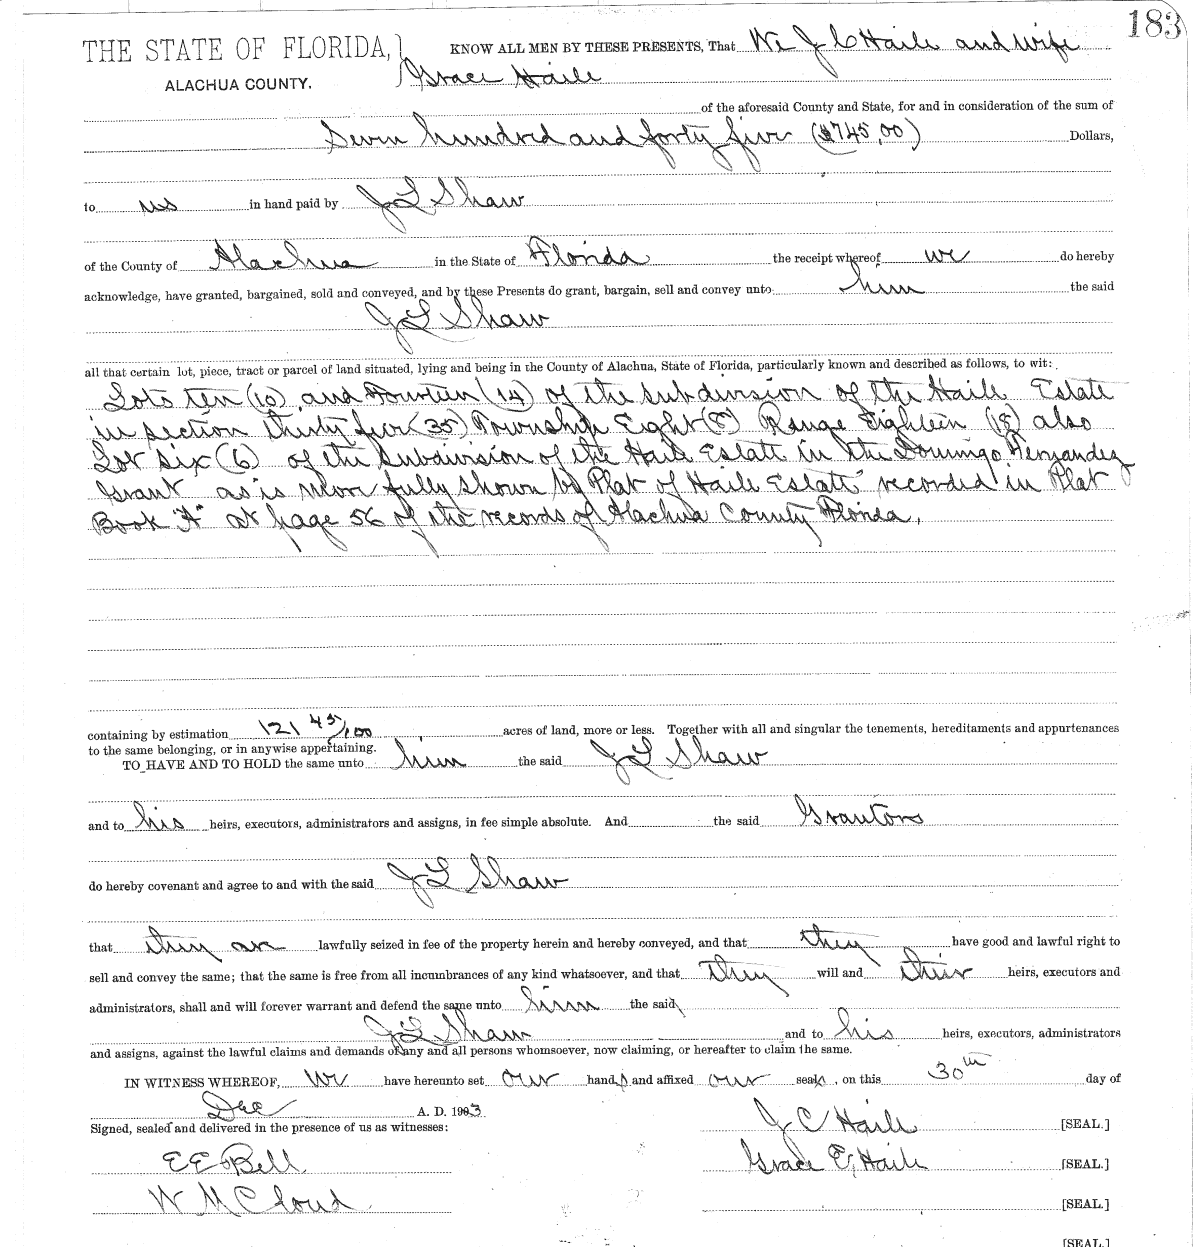 183
THE STATE OF FLORIDA,
ALACHUA COUNTY.
KNOW ALL MEN BY THESE PRESENTS, That We J C Haile and wife
Grace Haile
of the aforesaid County and State, for and in consideration of the sum of
Seven hundred and forty five ($745,00) Dollars,
to us in hand paid by J L Shaw
of the County of Alachua in the State of Florida the receipt whereof we do hereby
acknowledge, have granted, bargained, sold and conveyed, and by these Presents do grant, bargain, sell and convey unto him the said
J L Shaw
all that certain lot, piece, tract or parcel of land situated, lying and being in the County of Alachua, State of Florida, particularly known and described as follows, to wit:
Lots ten (10) and Fourteen (14) of the subdivision of the Haile Estate
in section thirty five (35) Township Eight (8) Range Eighteen (18) also
Lot six (6) of the Subdivision of the Haile Estate in the Domingo Fernandez
Grant as is more fully shown by Plat of Haile Estate" recorded in Plat
Book "A" at page 56 of the records of Alachua County Florida,
containing by estimation 121 45/100 acres of land, more or less. Together with all and singular the tenements, hereditaments and appurtenances
to the same belonging, or in anywise appertaining.
TO HAVE AND TO HOLD the same unto him the said J L Shaw
and to his heirs, executors, administrators and assigns, in fee simple absolute. And the said Grantors
do hereby covenant and agree to and with the said J L Shaw
that they are lawfully seized in fee of the property herein and hereby conveyed, and that they have good and lawful right to
sell and convey the same; that the same is free from all incumbrances of any kind whatsoever, and that they will and their heirs, executors and
administrators, shall and will forever warrant and defend the same unto him the said
J L Shaw and to his heirs, executors, administrators
and assigns, against the lawful claims and demands of any and all persons whomsoever, now claiming, or hereafter to claim the same.
IN WITNESS WHEREOF, We have hereunto set our hands and affixed our seals, on this 30th day of
Dec A. D. 1903
Signed, sealed and delivered in the presence of us as witnesses:
J C Haile [SEAL.]
E E Bell
Grace E, Haile [SEAL.]
W M Cloud
[SEAL.]
[SEAL.]